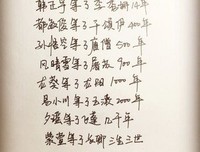 韩正宇等了李秀珊14年
都敏俊等了千颂伊400年
孙悟空等了唐僧500年
凡晴雪等了屠苏900年
古灵等了龙阳1000年
易小川等了玉漱2000年
夕瑶等了飞蓬几千年
紫萱等了长卿三生三世